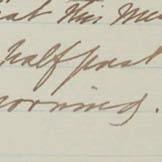 at this
half past
morning.